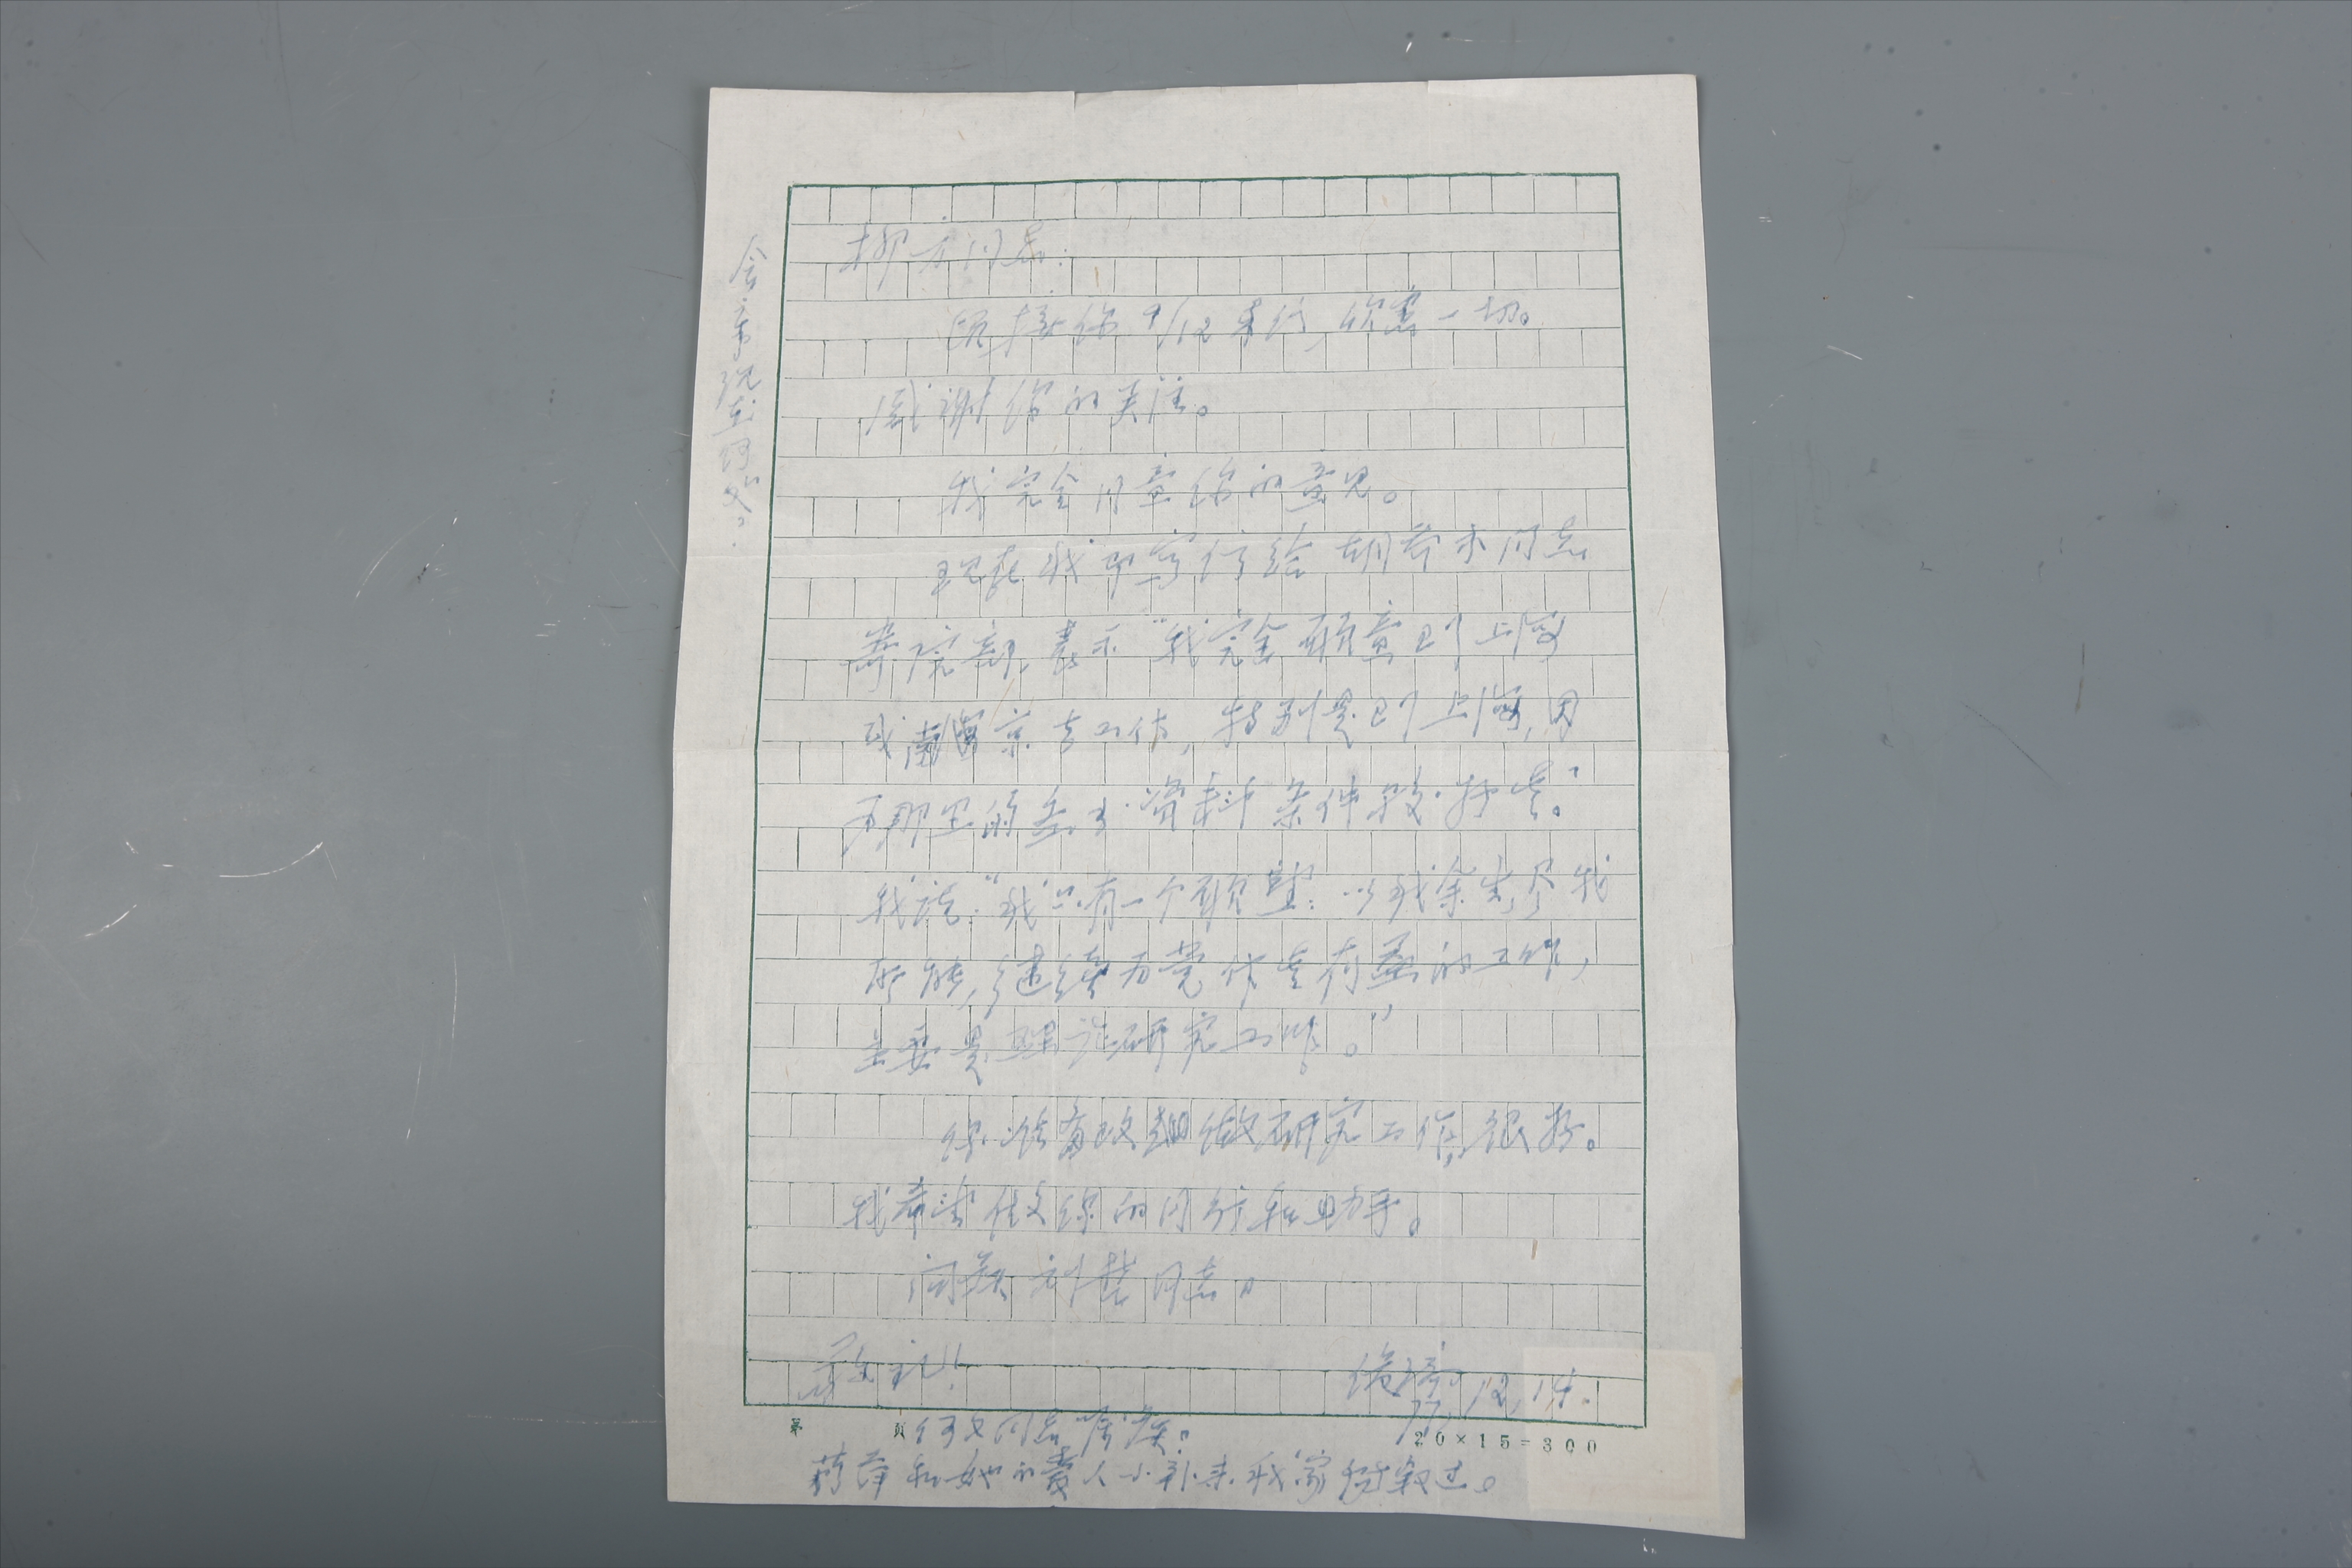 柳方同志:
顷接你9/12来信,欣悉一切。
感谢你的关注。
我完全同意你的意见。
现在我即写信给胡乔木同志
等院部,表示“我完全愿意到上海
或南京去工作,特别是到上海,因
为那里的图书资料条件较好些。”
我说:“我只有一个愿望:以我余生,尽我
所能,继续为党作些有益的工作,
主要是理论研究工作。”
你准备改组做研究工作,很好。
我希望做你的同行和助手。
问候刘楚同志。
敬礼!
77,12,14.
何文同志病疾。
蒋萍和她的爱人小补来我家畅叙过。
金章现在何处?
第 页
20×15=300